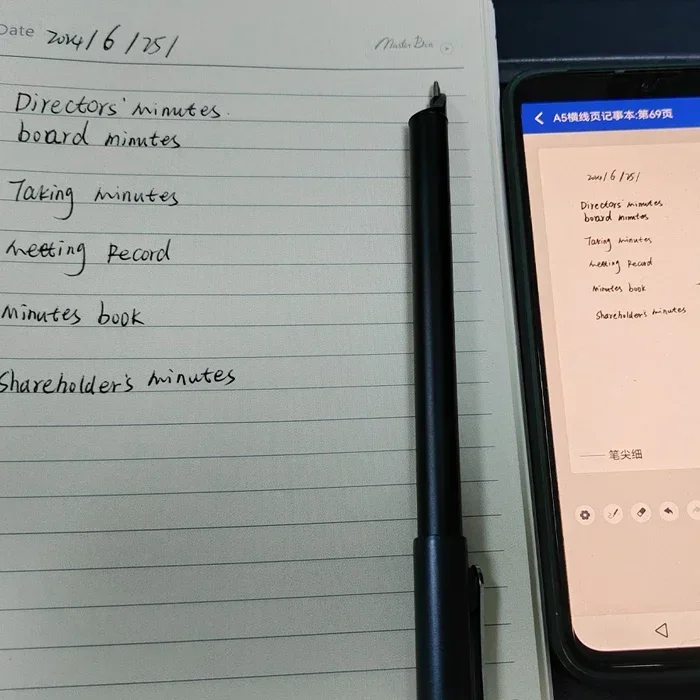 Date 2024/6/25/
Master Ben
Directors' minutes.
board minutes
Taking minutes
meeting Record
minutes book
Shareholder's minutes
A5横线页记事本:第69页
2024/6/25/
Directors' minutes
board minutes
Taking minutes
meeting Record
minutes book
Shareholder's minutes
笔尖细